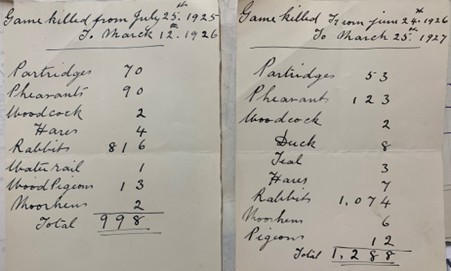 Game killed from July 25.th 1925
To March 12.th 1926
Partridges 70
Pheasants 90
Woodcock 2
Hares 4
Rabbits 816
Water rail 1
Wood Pigeons 13
Moorhens 2
Total 998
Game killed From June 24.th 1926
To March 25.th 1927
Partridges 53
Pheasants 123
Woodcock 2
Duck 8
Teal 3
Hares 7
Rabbits 1,074
Moorhens 6
Pigeons 12
Total 1,288